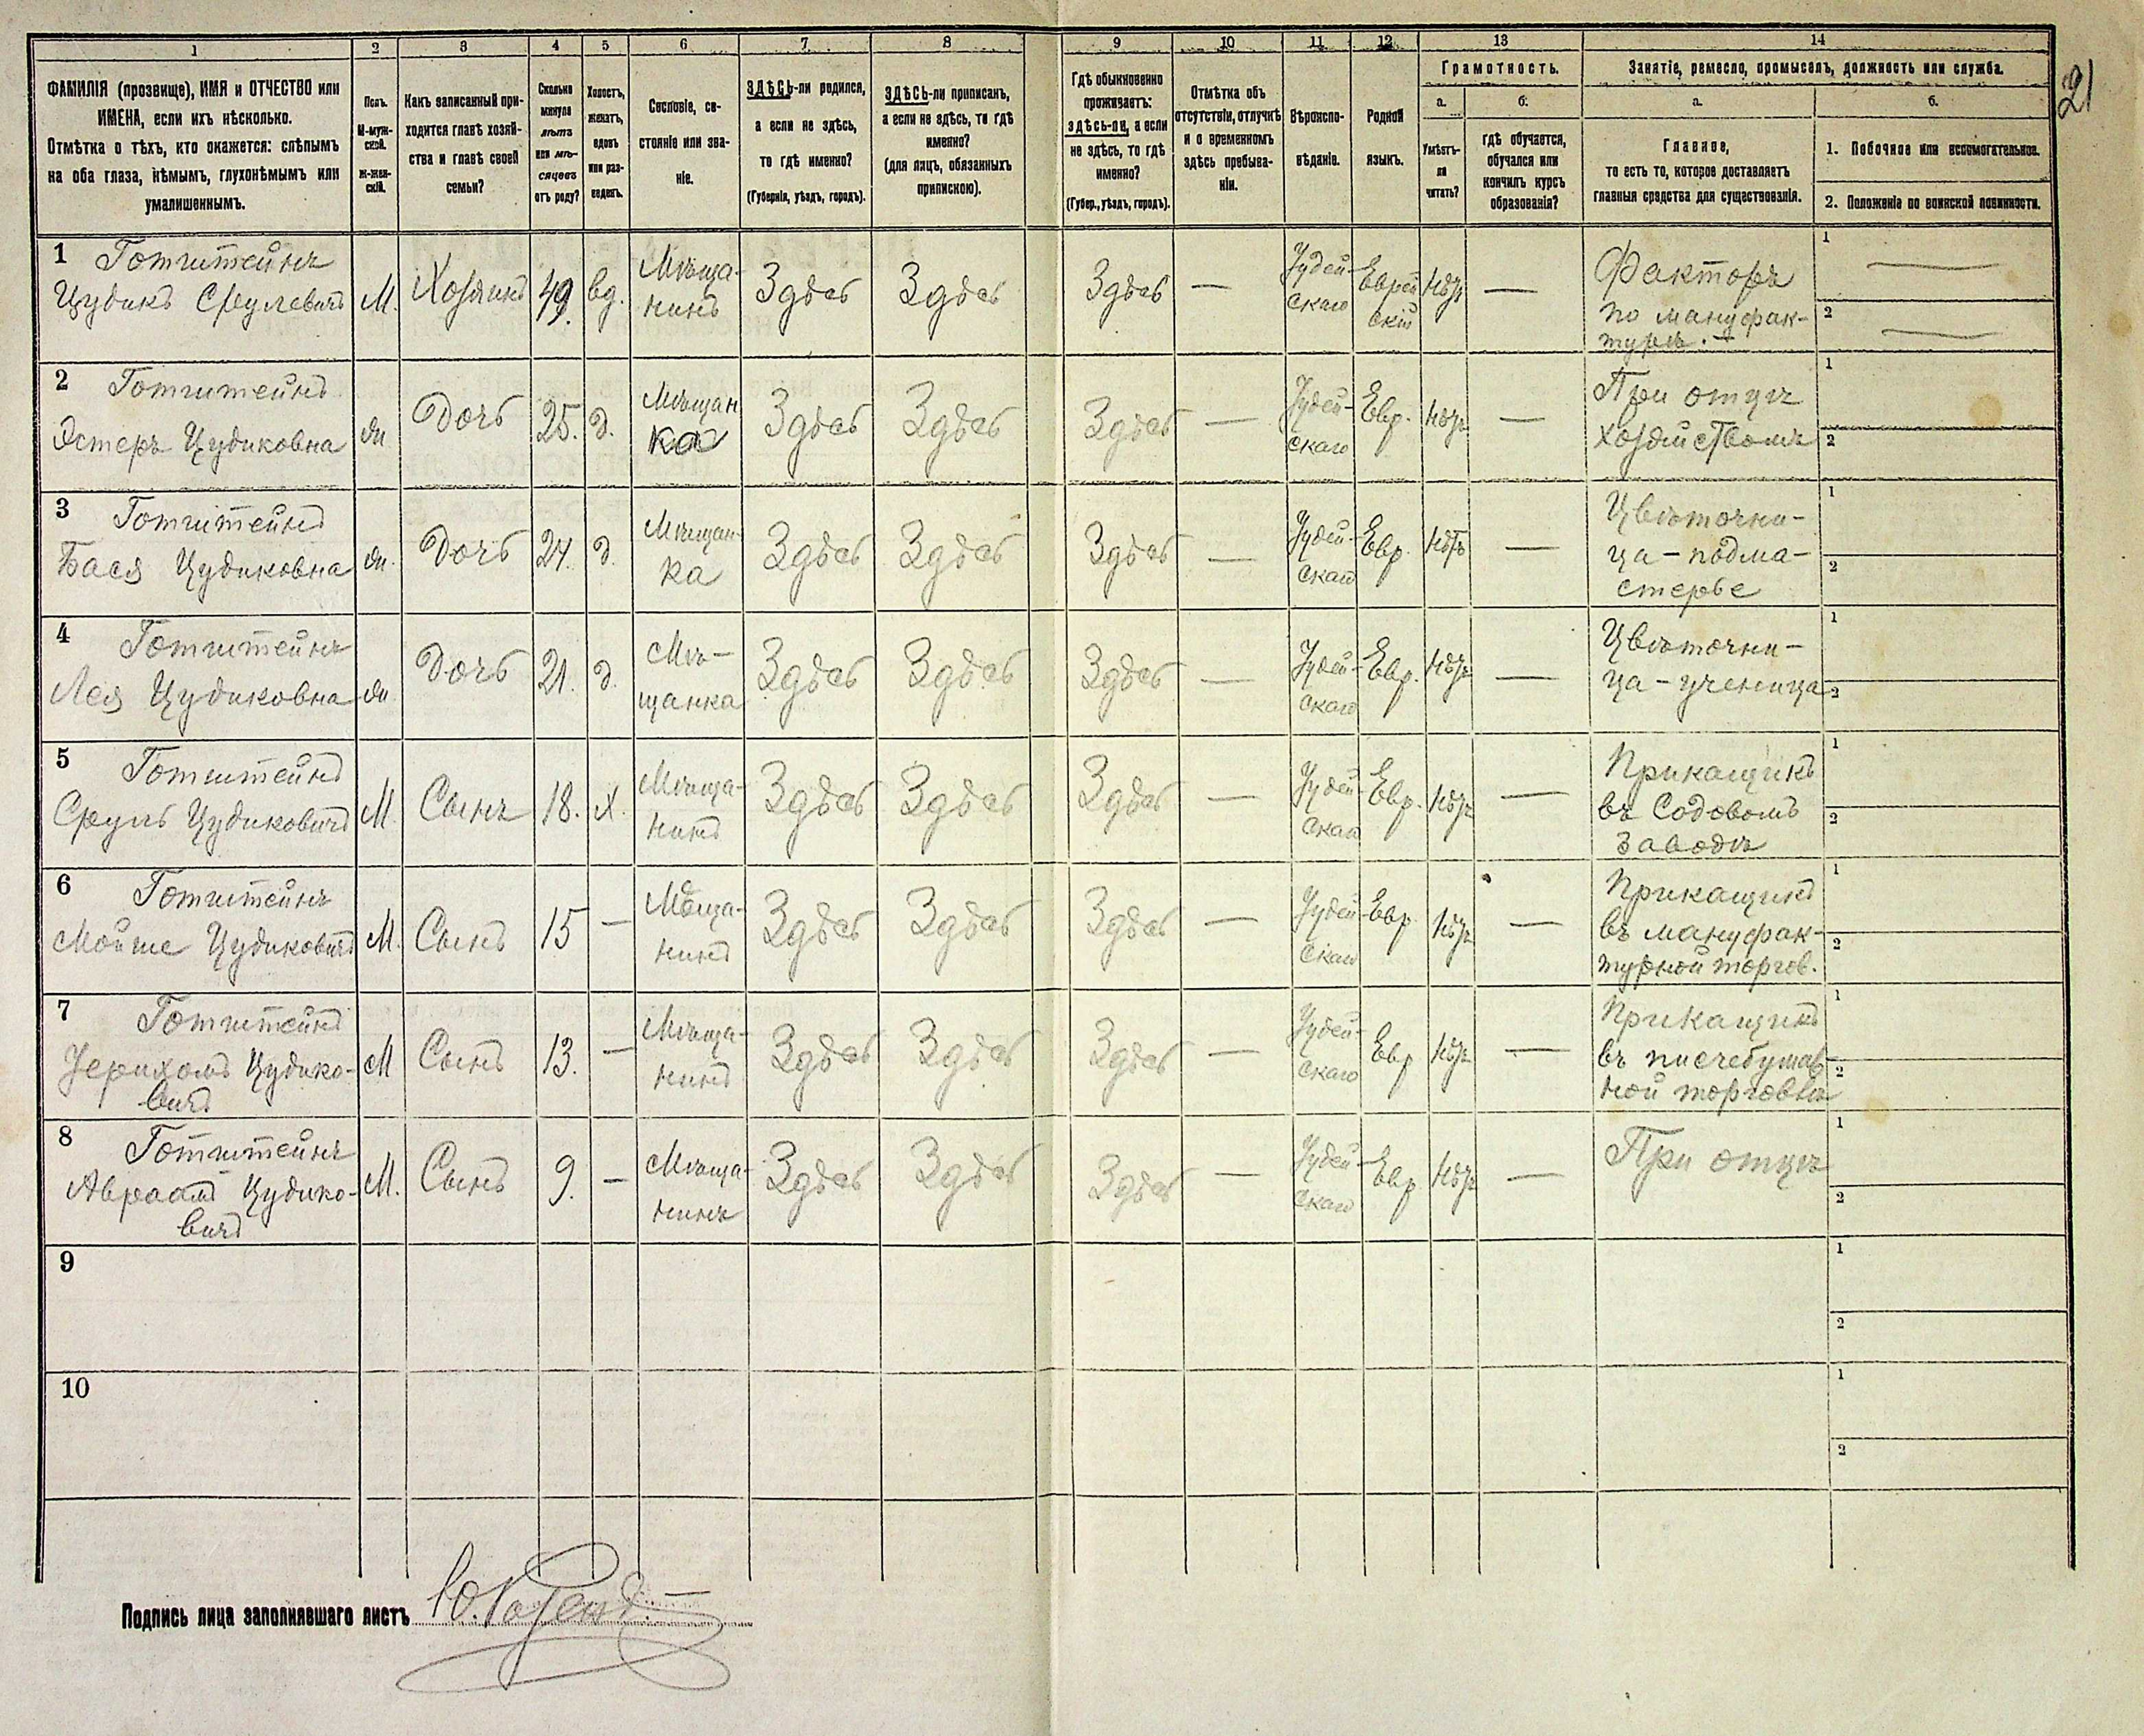 1 2 3 4 5 6 7 8 9 10 11 12 13 14
21
ФАМИЛІЯ (прозвище), ИМЯ и ОТЧЕСТВО или
ИМЕНА, если ихъ нѣсколько.
Отмѣтка о тѣхъ, кто окажется: слѣпымъ
на оба глаза, нѣмымъ, глухонѣмымъ или
умалишеннымъ.
Полъ.
М-муж-
ской.
Ж-жен-
скій.
Какъ записанный при-
ходится главѣ хозяй-
ства и главѣ своей
семьи?
Сколько
минуло
лѣтъ
или мѣ-
сяцевъ
отъ роду?
Холостъ,
женатъ,
вдовъ
или раз-
веденъ.
Сословіе, со-
стояніе или зва-
ніе.
ЗДѢСЬ-ли родился,
а если не здѣсь,
то гдѣ именно?
(Губернія, уѣздъ, городъ).
ЗДѢСЬ-ли приписанъ,
а если не здѣсь, то гдѣ
именно?
(для лицъ, обязанныхъ
припискою).
Гдѣ обыкновенно
проживаетъ:
здѣсь-ли, а если
не здѣсь, то гдѣ
именно?
(Губер., уѣздъ, городъ).
Отмѣтка объ
отсутствіи, отлучкѣ
и о временномъ
здѣсь пребыва-
ніи.
Вѣроиспо-
вѣданіе.
Родной
языкъ.
Грамотность.
а. б.
Умѣетъ-
ли
читать?
гдѣ обучается,
обучался или
кончилъ курсъ
образованія?
Занятіе, ремесло, промыселъ, должность или служба.
а. б.
Главное,
то есть то, которое доставляетъ
главныя средства для существованія.
1. Побочное или вспомогательное.
2. Положеніе по воинской повинности.
1 Готштейнъ
Цудикъ Срулевичъ
М. Хозяинъ 49. вд.
Мѣща-
нинъ
Здѣсь Здѣсь Здѣсь —
Іудей-
скаго
Еврей
скій
нѣтъ —
Факторъ
по мануфак-
турѣ. —
1 —
2 —
2 Готштейнъ
Эстеръ Цудиковна
ж Дочь 25. д.
Мѣщан
ка
Здѣсь Здѣсь Здѣсь —
Іудей-
скаго
Евр. нѣтъ —
При отцѣ
хозяйствомъ
1
2
3 Готштейнъ
Бася Цудиковна
ж. Дочь 24. д.
Мѣщан-
ка
Здѣсь Здѣсь Здѣсь —
Іудей-
скаго
Евр. нѣтъ —
Цвѣточни-
ца - подма-
стерье
1
2
4 Готштейнъ
Лея Цудиковна
ж Дочь 21. д.
Мѣ-
щанка
Здѣсь Здѣсь Здѣсь —
Іудей-
скаго
Евр. нѣтъ —
Цвѣточни-
ца - ученица
1
2
5 Готштейнъ
Сруль Цудиковичъ
М Сынъ 18. х.
Мѣща-
нинъ
Здѣсь Здѣсь Здѣсь —
Іудей
скаго
Евр. нѣтъ —
Прикащикъ
въ Содовомъ
заводѣ
1
2
6 Готштейнъ
Мойше Цудиковичъ
М. Сынъ 15 —
Мѣща-
нинъ
Здѣсь Здѣсь Здѣсь —
Іудей
скаго
Евр нѣтъ —
Прикащикъ
въ мануфак-
турной торгов.
1
2
7 Готштейнъ
Іерихомъ Цудико-
вичъ
М Сынъ 13. —
Мѣща-
нинъ
Здѣсь Здѣсь Здѣсь —
Іудей-
скаго
Евр нѣтъ —
Прикащикъ
въ писчебумаж
ной торговлѣ
1
2
8 Готштейнъ
Авраамъ Цудико-
вичъ
М. Сынъ 9. —
Мѣща-
нинъ
Здѣсь Здѣсь Здѣсь —
Іудей-
скаго
Евр нѣтъ —
При отцѣ
1
2
9
1
2
10
1
2
Подпись лица заполнявшаго листъ